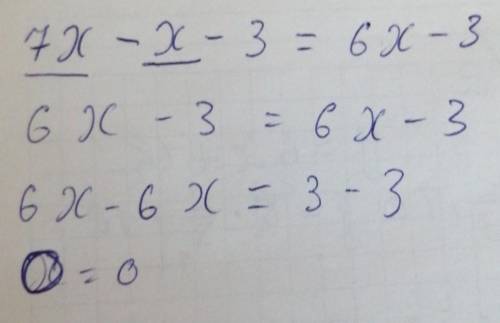 7x - x - 3 = 6x - 3
6x - 3 = 6x - 3
6x - 6x = 3 - 3
0 = 0